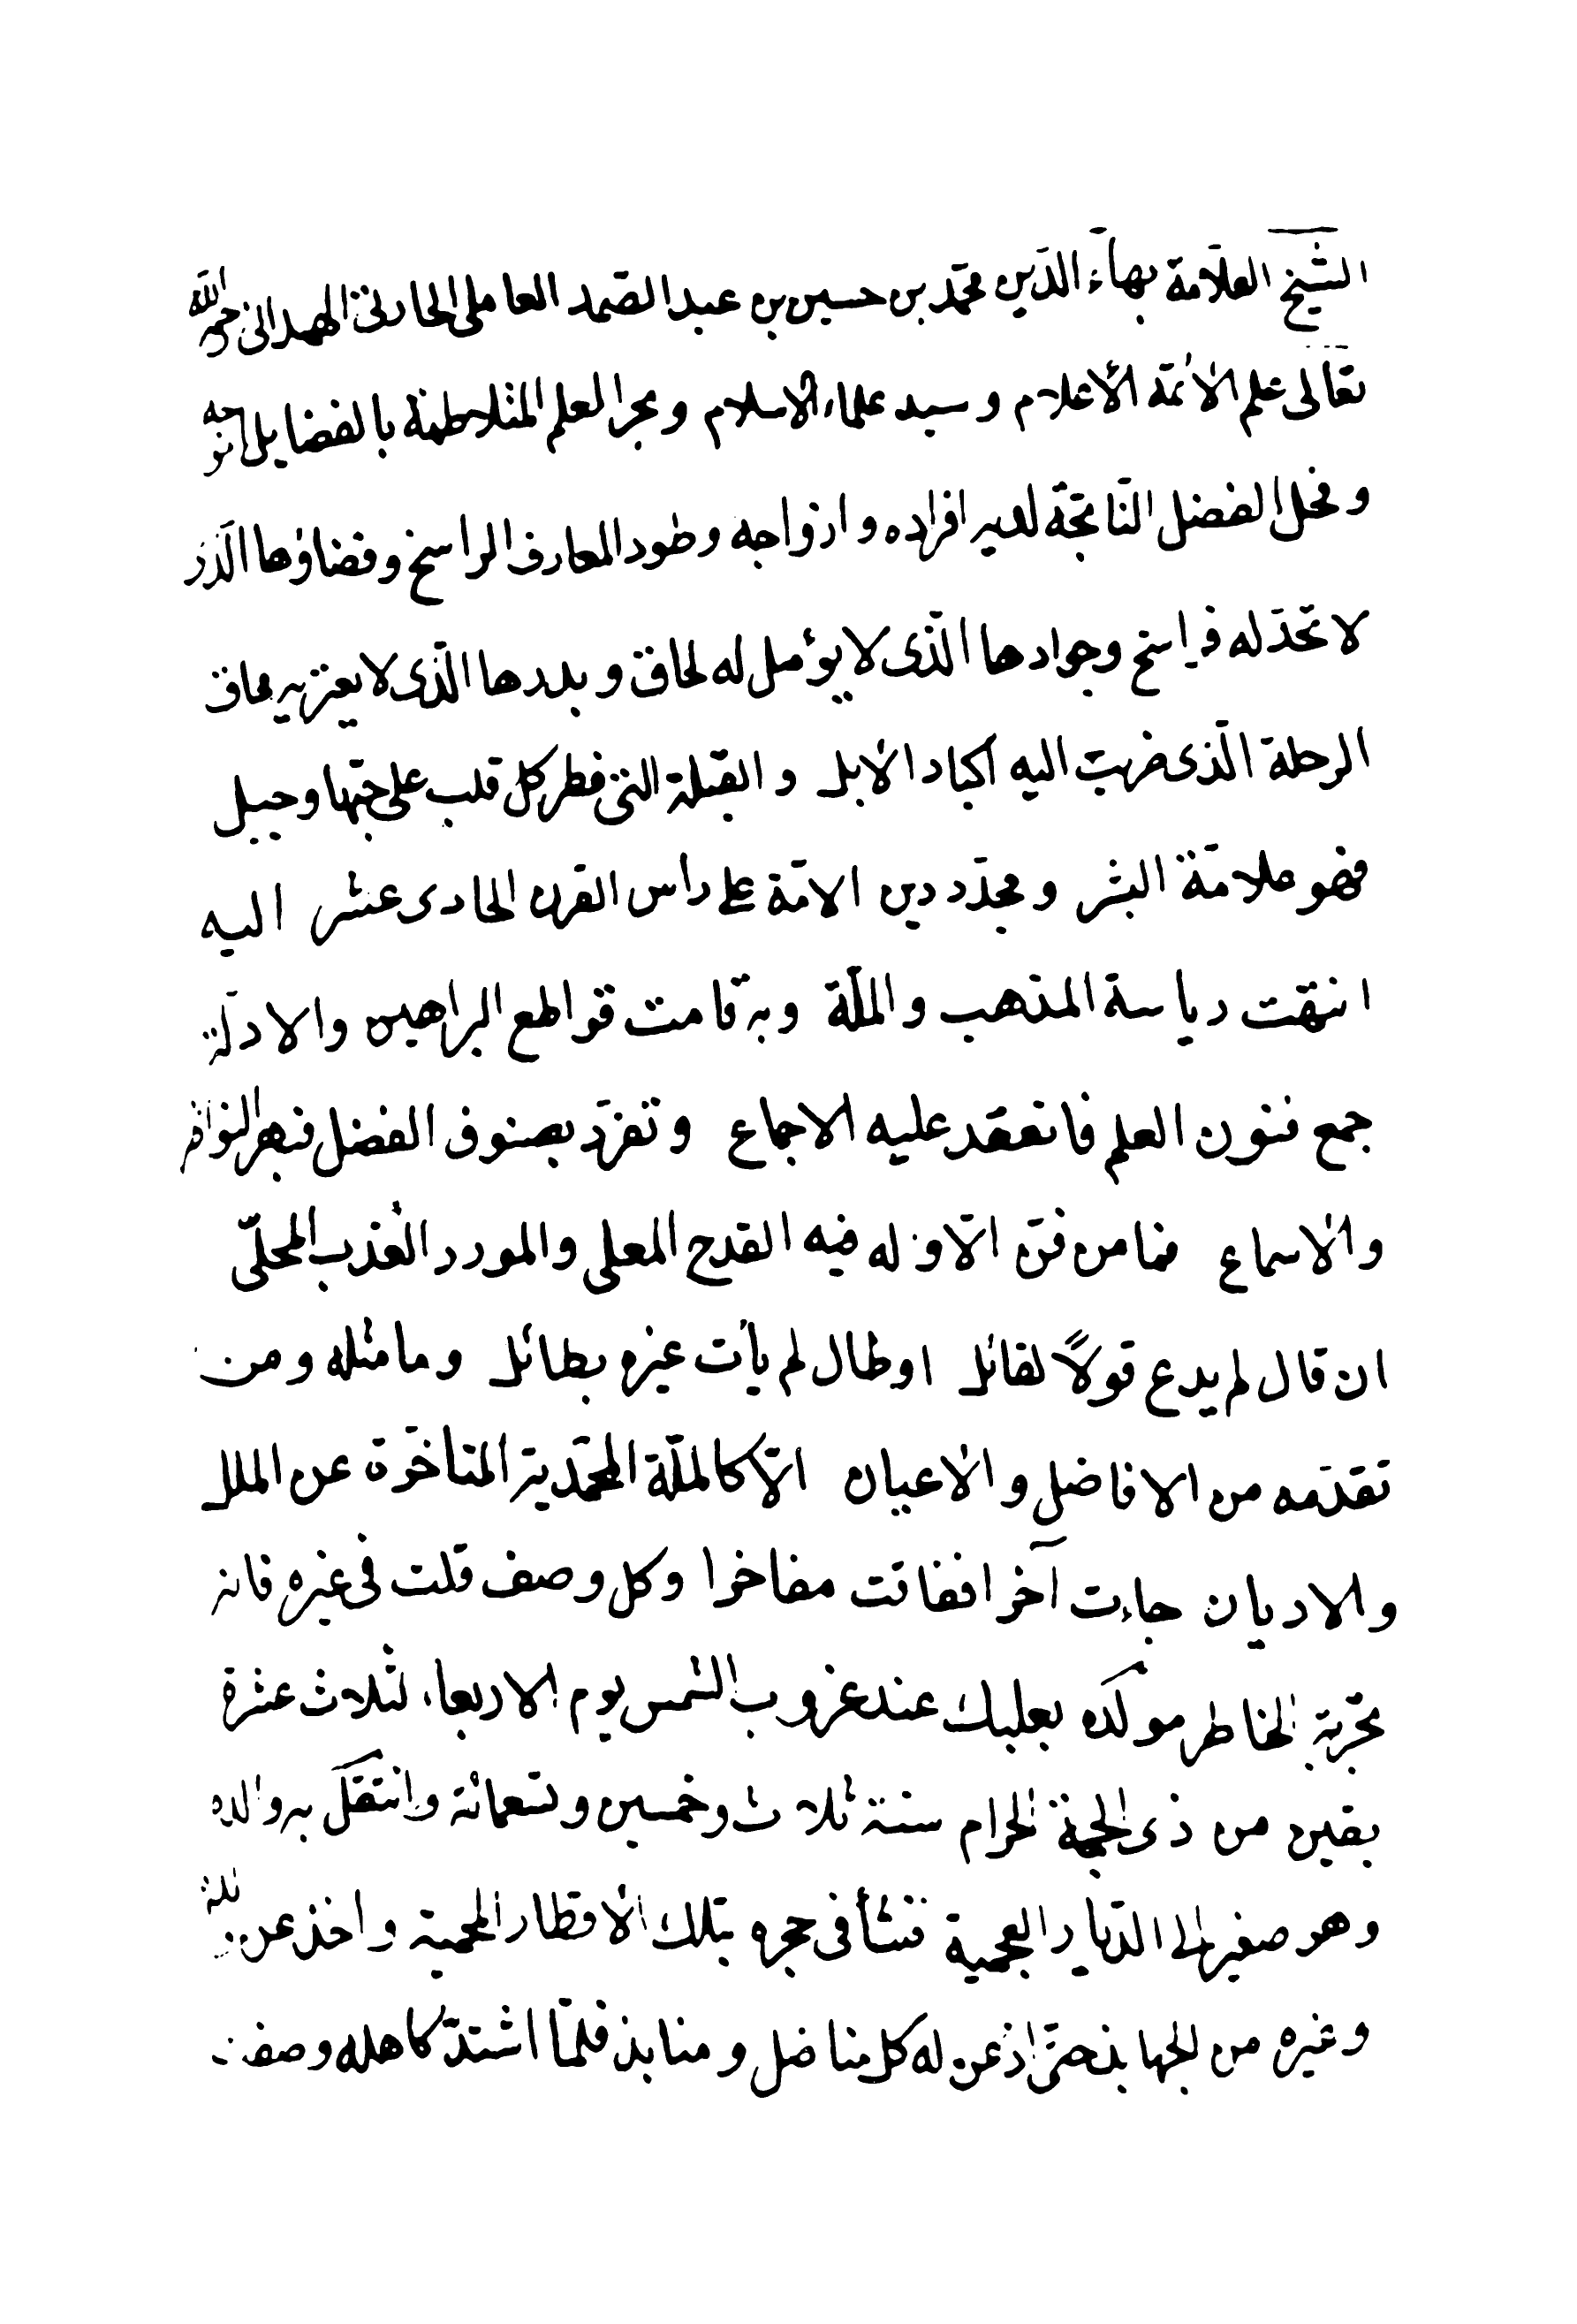 الشيخ العلّامة بهاء الدّين محمّد بن حسين بن عبد الصّمد العاملى الحارثى الهمدانى رحمه اللّه
تعالى علم الائمّة الأعلام وسيد علماء الاسلام وبحر العلم المتلاطمة بالفضايل امواجه
وفحل الفضل النّاتجة لديه افراده وازواجه وطود المعارف الراسخ وفضاؤها الّذى
لا تحدّ له فراسخ وجوادها الّذى لا يؤمل له لحاق وبدرها الّذى لا يعتريه محاق
الرحلة الّذى ضربت اليه اكباد الابل والقبلة التى فطر كل قلب على حبّها وجبل
فهو علامّة البشر ومجدّد دين الامّة على راس القرن الحادى عشر اليه
انتهت رياسة المذهب والملّة وبه قامت قواطع البراهين والادلّة
جمع فنون العلم فانعقد عليه الاجماع وتفرّد بصنوف الفضل فبهر النواظر
والاسماع فما من فنّ الّا وله فيه القدح المعلى والمورد العذب المحلّى
ان قال لم يدع قولًا لقائل اوطال لم يأت غيره بطائل وما مثله ومن
تقدّمه من الافاضل والاعيان الّا كالملّة المحمّدية المتاخّرة عن الملل
والاديان جاءت آخرا ففاتت مفاخرا وكل وصف قلت فى غيره فانه
تجربة الخاطر مولده بعلبك عند غروب الشمس يوم الاربعاء لثلاث عشرة
بقين من ذى الحجة الحرام سنة ثلاث وخمسين وتسعمائة وانتقل به والده
وهو صغير الى الدّيار العجمية فنشأ فى حجره بتلك الاقطار المحمية واخذ عن
وغيره من الجهابذ حتّى اذعن له كل مناضل ومنابذ فلمّا اشتدّ كاهله وصفت